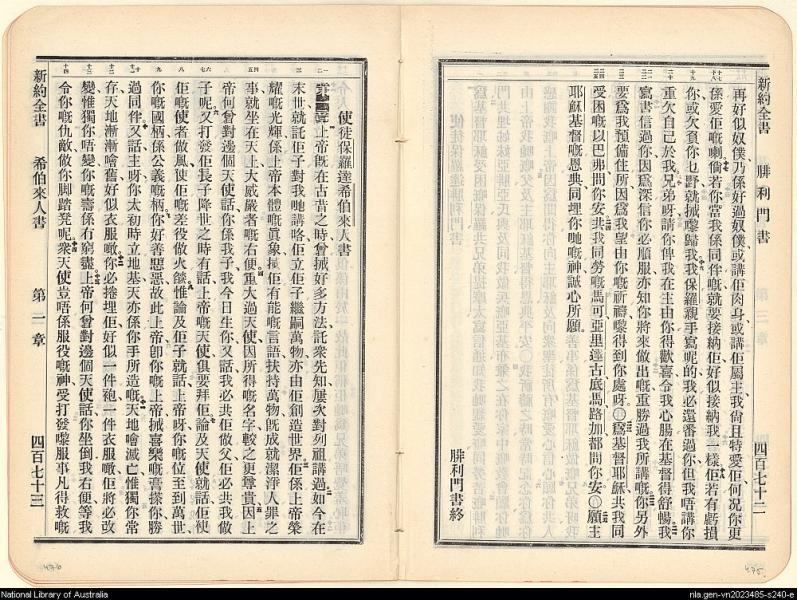 新約全書
腓利門書
四百七十二
再好似奴僕乃係好過奴僕或講佢肉身或講佢屬主我尙且特愛佢何况你更
係愛佢嘅喇倘若你當我係同伴嘅就要接納佢好似接納我一樣佢若有虧損
你或欠負你乜野就摵嚟歸我我保羅親手寫呢的我必還番過你但我唔講你
重欠自己於我兄弟呀請你俾我在主由你得歡喜令我心腸在基督得舒暢我
寫書信過你因爲深信你必順服亦知你將來做出嘅重勝過我所講嘅你另外
要爲我預備住所因爲我望由你嘅祈禱嚟得到你處呀〇爲基督耶穌共我同
受困嘅以巴弗問你安共我同勞嘅馬可亞里達古底馬路加都問你安〇願主
耶穌基督嘅恩典同埋你哋嘅神誠心所願
腓利門書終
使徒保羅達希伯來人書
上帝旣在古昔之時曾摵好多方法託衆先知屢次對列祖講過如今在
末世就託佢子對我哋講咯佢立佢子繼嗣萬物亦由佢創造世界佢係上帝榮
耀嘅光輝係上帝本體嘅眞象摵佢有能嘅言語扶持萬物旣成就潔淨人罪之
事就坐在天上大威嚴者嘅右便重大過天使因所得嘅名字較之更尊貴因上
帝何曾對邊個天使話你係我子我今日生你又話我必共佢做父佢必共我做
子呢又打發佢長子降世之時有話上帝嘅天使俱要拜佢論及天使就話佢使
佢嘅使者做風使佢嘅差役做火燄惟論及佢子就話上帝呀你嘅位至到萬世
你嘅國柄係公義嘅柄你好善惡惡故此上帝卽你嘅上帝摵喜樂嘅膏搽你勝
過同伴又話主呀你太初時立地基天亦係你手所造嘅天地噲滅亡惟獨你常
存天地漸漸噲舊好似衣服噉你必捲埋佢好似一件袍一件衣服噉佢將必改
變惟獨你唔變你嘅壽係冇窮盡上帝何曾對邊個天使話你坐倒我右便等我
令你嘅仇敵做你脚踏凳呢衆天使豈唔係服役嘅神受打發嚟服事凡得救嘅
新約全書
希伯來人書
第一章
四百七十三
475
476
National Library of Australia
nla.gen-vn2023485-s240-e